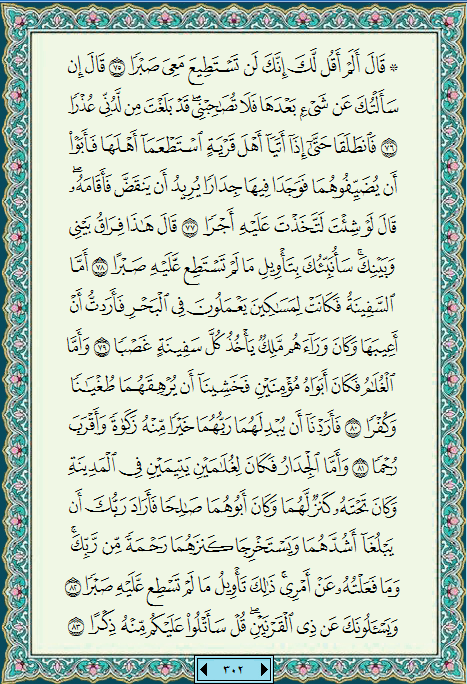 ۞ قَالَ أَلَمْ أَقُل لَّكَ إِنَّكَ لَن تَسْتَطِيعَ مَعِيَ صَبْرًا ٧٥ قَالَ إِن
سَأَلْتُكَ عَن شَىْءٍۭ بَعْدَهَا فَلَا تُصَٰحِبْنِى ۖ قَدْ بَلَغْتَ مِن لَّدُنِّى عُذْرًا
٧٦ فَٱنطَلَقَا حَتَّىٰٓ إِذَآ أَتَيَآ أَهْلَ قَرْيَةٍ ٱسْتَطْعَمَآ أَهْلَهَا فَأَبَوْا۟
أَن يُضَيِّفُوهُمَا فَوَجَدَا فِيهَا جِدَارًا يُرِيدُ أَن يَنقَضَّ فَأَقَامَهُۥ ۖ
قَالَ لَوْ شِئْتَ لَتَّخَذْتَ عَلَيْهِ أَجْرًا ٧٧ قَالَ هَٰذَا فِرَاقُ بَيْنِى
وَبَيْنِكَ ۚ سَأُنَبِّئُكَ بِتَأْوِيلِ مَا لَمْ تَسْتَطِع عَّلَيْهِ صَبْرًا ٧٨ أَمَّا
ٱلسَّفِينَةُ فَكَانَتْ لِمَسَٰكِينَ يَعْمَلُونَ فِى ٱلْبَحْرِ فَأَرَدتُّ أَنْ
أَعِيبَهَا وَكَانَ وَرَآءَهُم مَّلِكٌ يَأْخُذُ كُلَّ سَفِينَةٍ غَصْبًا ٧٩ وَأَمَّا
ٱلْغُلَٰمُ فَكَانَ أَبَوَاهُ مُؤْمِنَيْنِ فَخَشِينَآ أَن يُرْهِقَهُمَا طُغْيَٰنًا
وَكُفْرًا ٨٠ فَأَرَدْنَآ أَن يُبْدِلَهُمَا رَبُّهُمَا خَيْرًا مِّنْهُ زَكَوٰةً وَأَقْرَبَ
رُحْمًا ٨١ وَأَمَّا ٱلْجِدَارُ فَكَانَ لِغُلَٰمَيْنِ يَتِيمَيْنِ فِى ٱلْمَدِينَةِ
وَكَانَ تَحْتَهُۥ كَنزٌ لَّهُمَا وَكَانَ أَبُوهُمَا صَٰلِحًا فَأَرَادَ رَبُّكَ أَن
يَبْلُغَآ أَشُدَّهُمَا وَيَسْتَخْرِجَا كَنزَهُمَا رَحْمَةً مِّن رَّبِّكَ ۚ
وَمَا فَعَلْتُهُۥ عَنْ أَمْرِى ۚ ذَٰلِكَ تَأْوِيلُ مَا لَمْ تَسْطِع عَّلَيْهِ صَبْرًا ٨٢
وَيَسْـَٔلُونَكَ عَن ذِى ٱلْقَرْنَيْنِ ۖ قُلْ سَأَتْلُوا۟ عَلَيْكُم مِّنْهُ ذِكْرًا ٨٣
٣٠٢